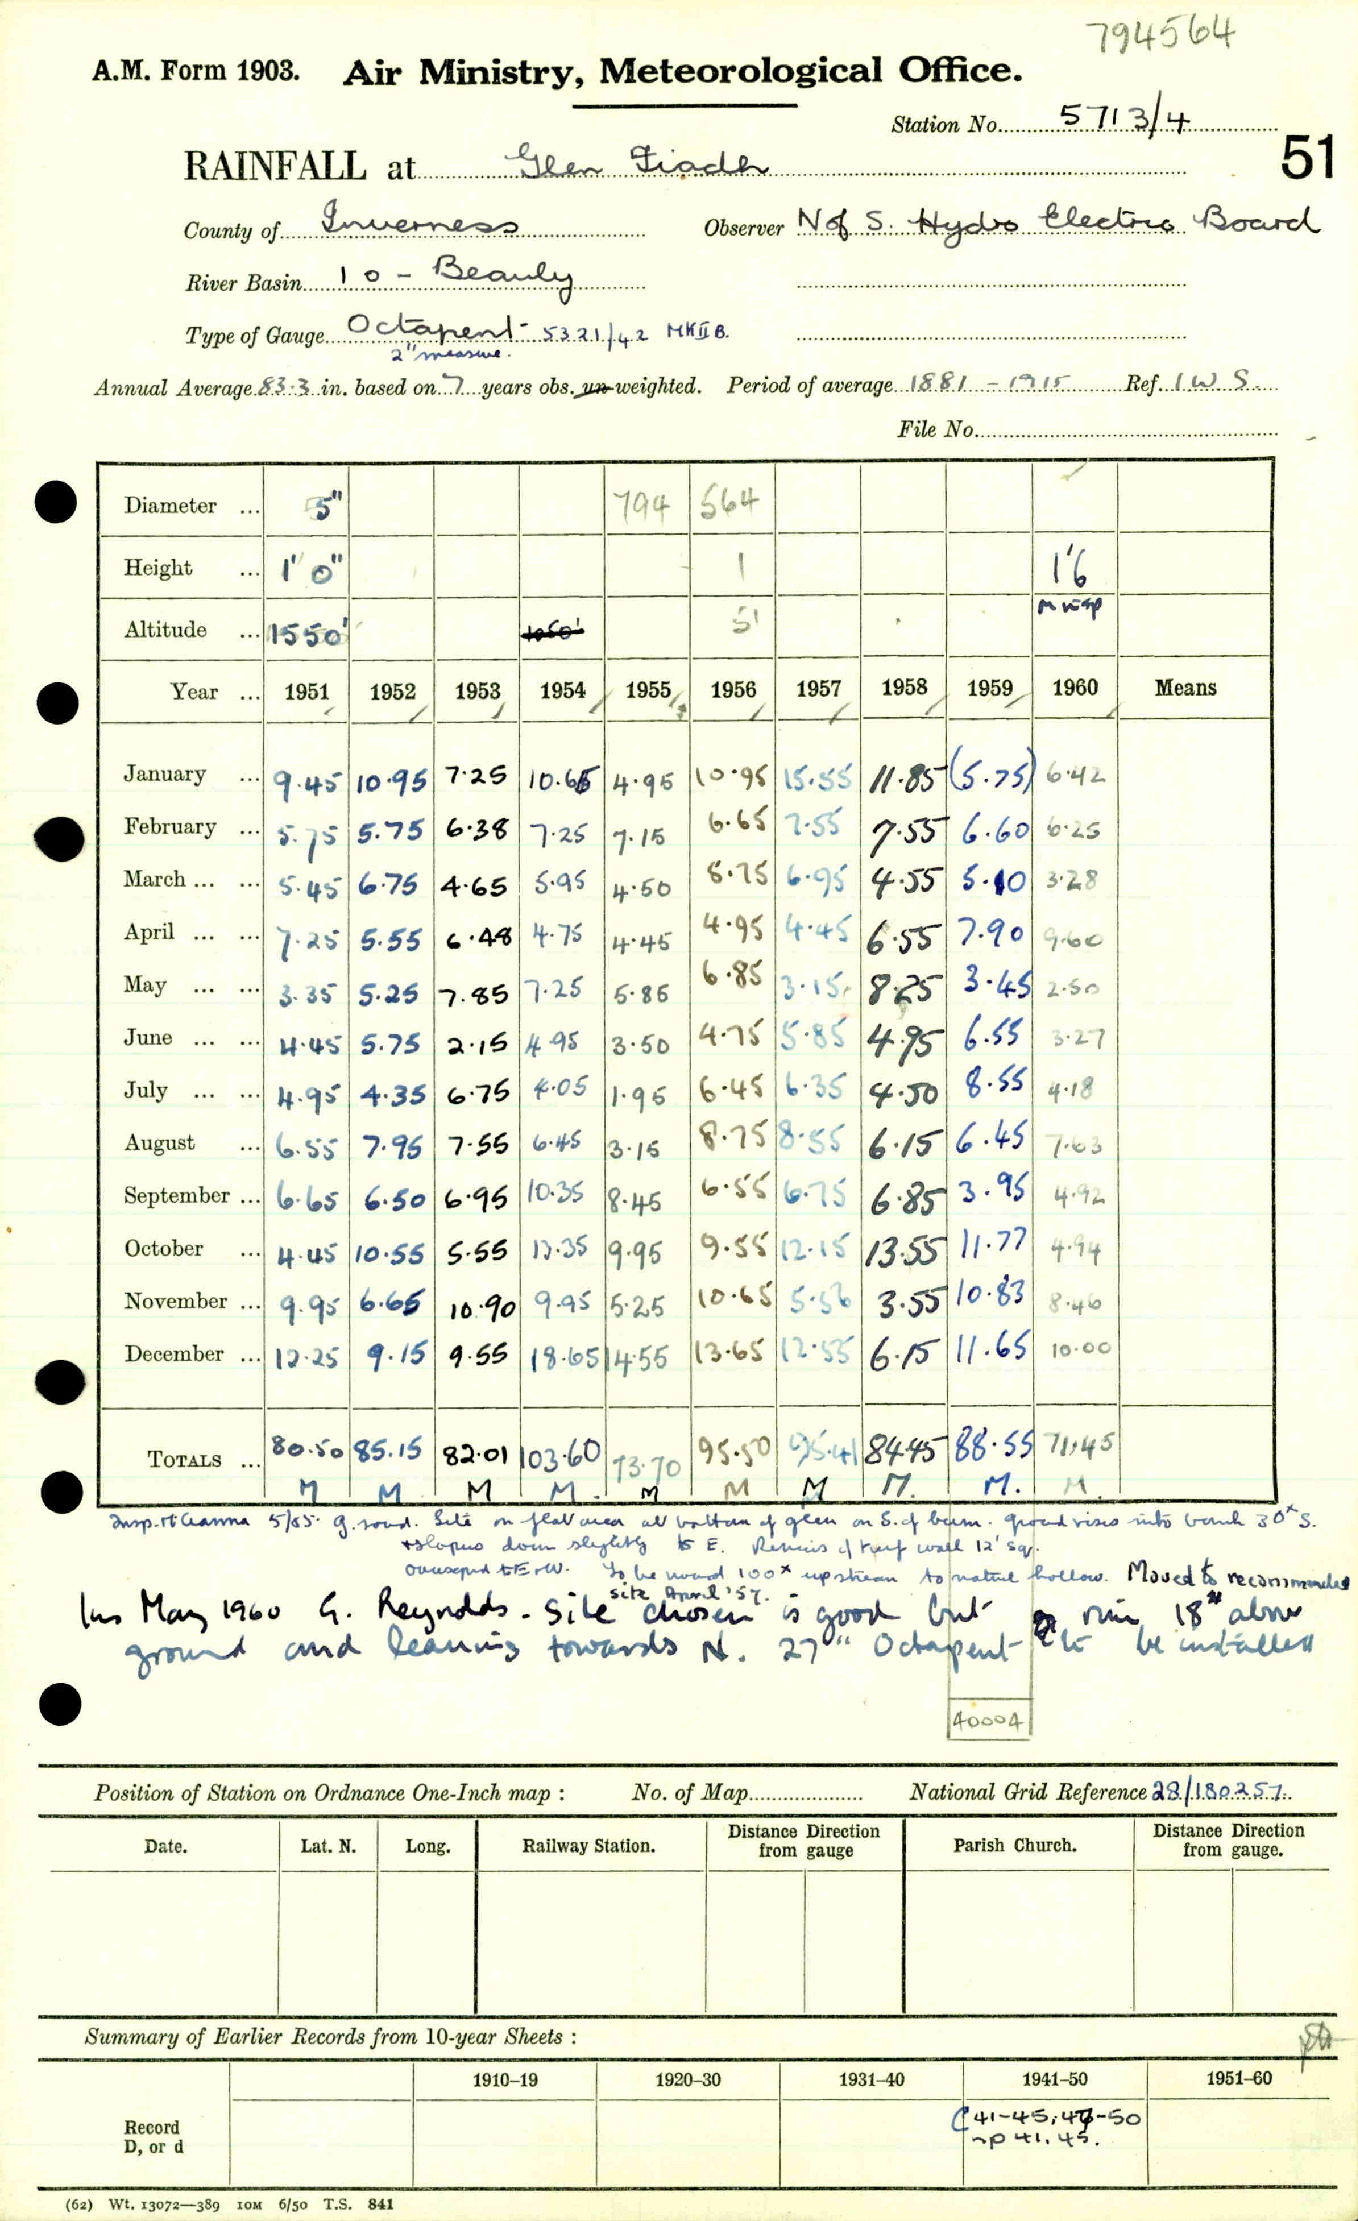 794564
A.M. Form 1903. Air Ministry, Meteorological Office.
Station No. 5713/4
51
RAINFALL at Glen Fiadh
County of Inverness Observer N of S. Hydro Electric Board
River Basin 10 - Beauly
Type of Gauge Octapent 5321/42 MK II B.
2" measure.
Annual Average 83.3 in. based on 7 years obs. un-weighted. Period of average 1881 - 1915 Ref. I W S.
File No.
Diameter ... 5" 794 564
Height ... 1' 0" 1 1'6
Altitude ... 1550' 1050' 51 M insp
Year ... 1951 1952 1953 1954 1955 1956 1957 1958 1959 1960 Means
January ... 9.45 10.95 7.25 10.65 4.95 10.95 15.55 11.85 (5.75) 6.42
February ... 5.75 5.75 6.38 7.25 7.15 6.65 7.55 7.55 6.60 6.25
March ... ... 5.45 6.75 4.65 5.95 4.50 8.75 6.95 4.55 5.10 3.28
April ... ... 7.25 5.55 6.48 4.75 4.45 4.95 4.45 6.55 7.90 9.60
May ... ... 3.35 5.25 7.85 7.25 5.85 6.85 3.15 8.25 3.45 2.50
June ... ... 4.45 5.75 2.15 4.95 3.50 4.75 5.85 4.95 6.55 3.27
July ... ... 4.95 4.35 6.75 4.05 1.95 6.45 6.35 4.50 8.55 4.18
August ... 6.55 7.95 7.55 6.45 3.15 8.75 8.55 6.15 6.45 7.63
September ... 6.65 6.50 6.95 10.35 8.45 6.55 6.75 6.85 3.95 4.92
October ... 4.45 10.55 5.55 13.35 9.95 9.55 12.15 13.55 11.77 4.94
November ... 9.95 6.65 10.90 9.95 5.25 10.65 5.56 3.55 10.83 8.46
December ... 12.25 9.15 9.55 18.65 14.55 13.65 12.55 6.15 11.65 10.00
TOTALS ... 80.50 85.15 82.01 103.60 73.70 95.50 95.41 84.45 88.55 71.45
M M M M. M M M M. M. M.
Insp. 5/55. g. Site on flat area at bottom of glen on S. of burn. ground rises into bank 30x S.
+ slopes down slightly to E. Remains of turf wall 12' sq.
to E & W. To be moved 100x upstream to natural hollow. Moved to recommended
site April '57.
Ins May 1960 G. Reynolds. Site chosen is good but rim 18" above
ground and leaning towards N. 27" Octapent to be installed
40004
Position of Station on Ordnance One-Inch map : No. of Map National Grid Reference 28/180257
Date. Lat. N. Long. Railway Station. Distance Direction from gauge Parish Church. Distance Direction from gauge.
Summary of Earlier Records from 10-year Sheets :
1910–19 1920–30 1931–40 1941–50 1951–60
Record D, or d
C 41-45, 47-50
np 41, 45.
(62) Wt. 13072—389 10M 6/50 T.S. 841